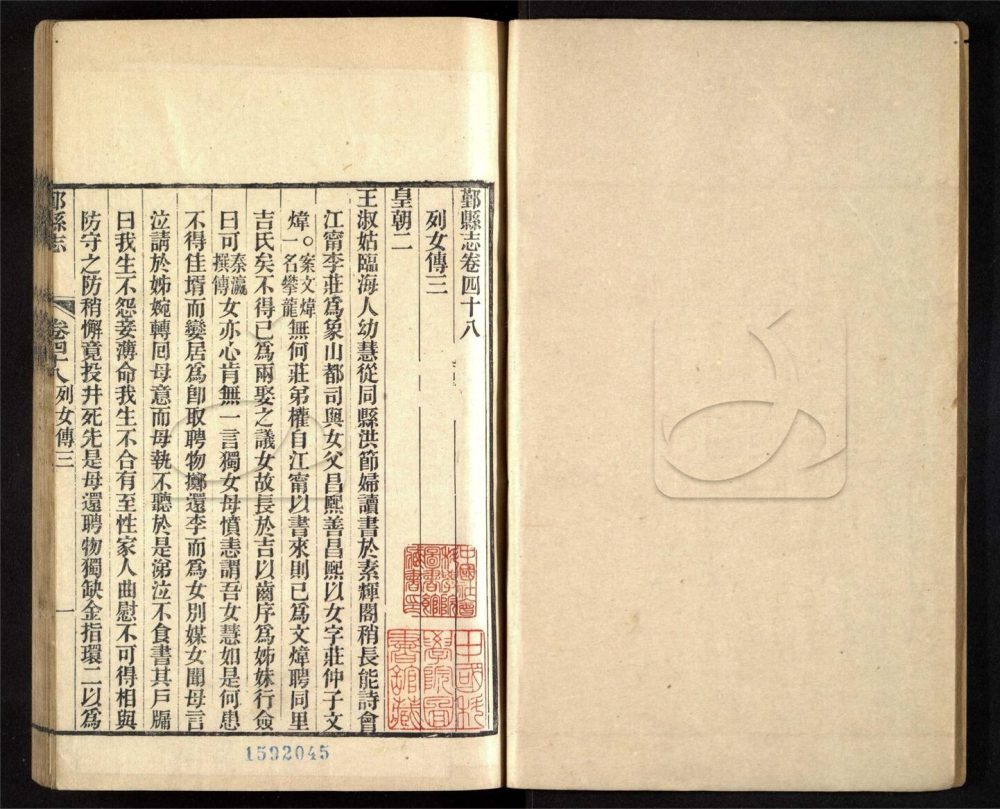 鄞縣志卷四十八
列女傳三
皇朝二
王淑姑臨海人幼慧從同縣洪節婦讀書於素輝閣稍長能詩會
江甯李莊爲象山都司與女父昌熙善昌熙以女字莊仲子文
煒○案文煒一名攀龍無何莊弟權自江甯以書來則已爲文煒聘同里
吉氏矣不得已爲兩娶之議女故長於吉以齒序爲姊妹行僉
曰可秦瀛撰傳女亦心肯無一言獨女母憤恚謂吾女慧如是何患
不得佳壻而孌居爲卽取聘物擲還李而爲女別媒女聞母言
泣請於姊婉轉回母意而母執不聽於是涕泣不食書其戶牖
曰我生不怨妾薄命我生不合有至性家人曲慰不可得相與
防守之防稍懈竟投井死先是母還聘物獨缺金指環二以爲
鄞縣志
卷四十八列女傳三
一
中國社會科學院圖書館藏書印
中國科學院圖書館藏
1592045